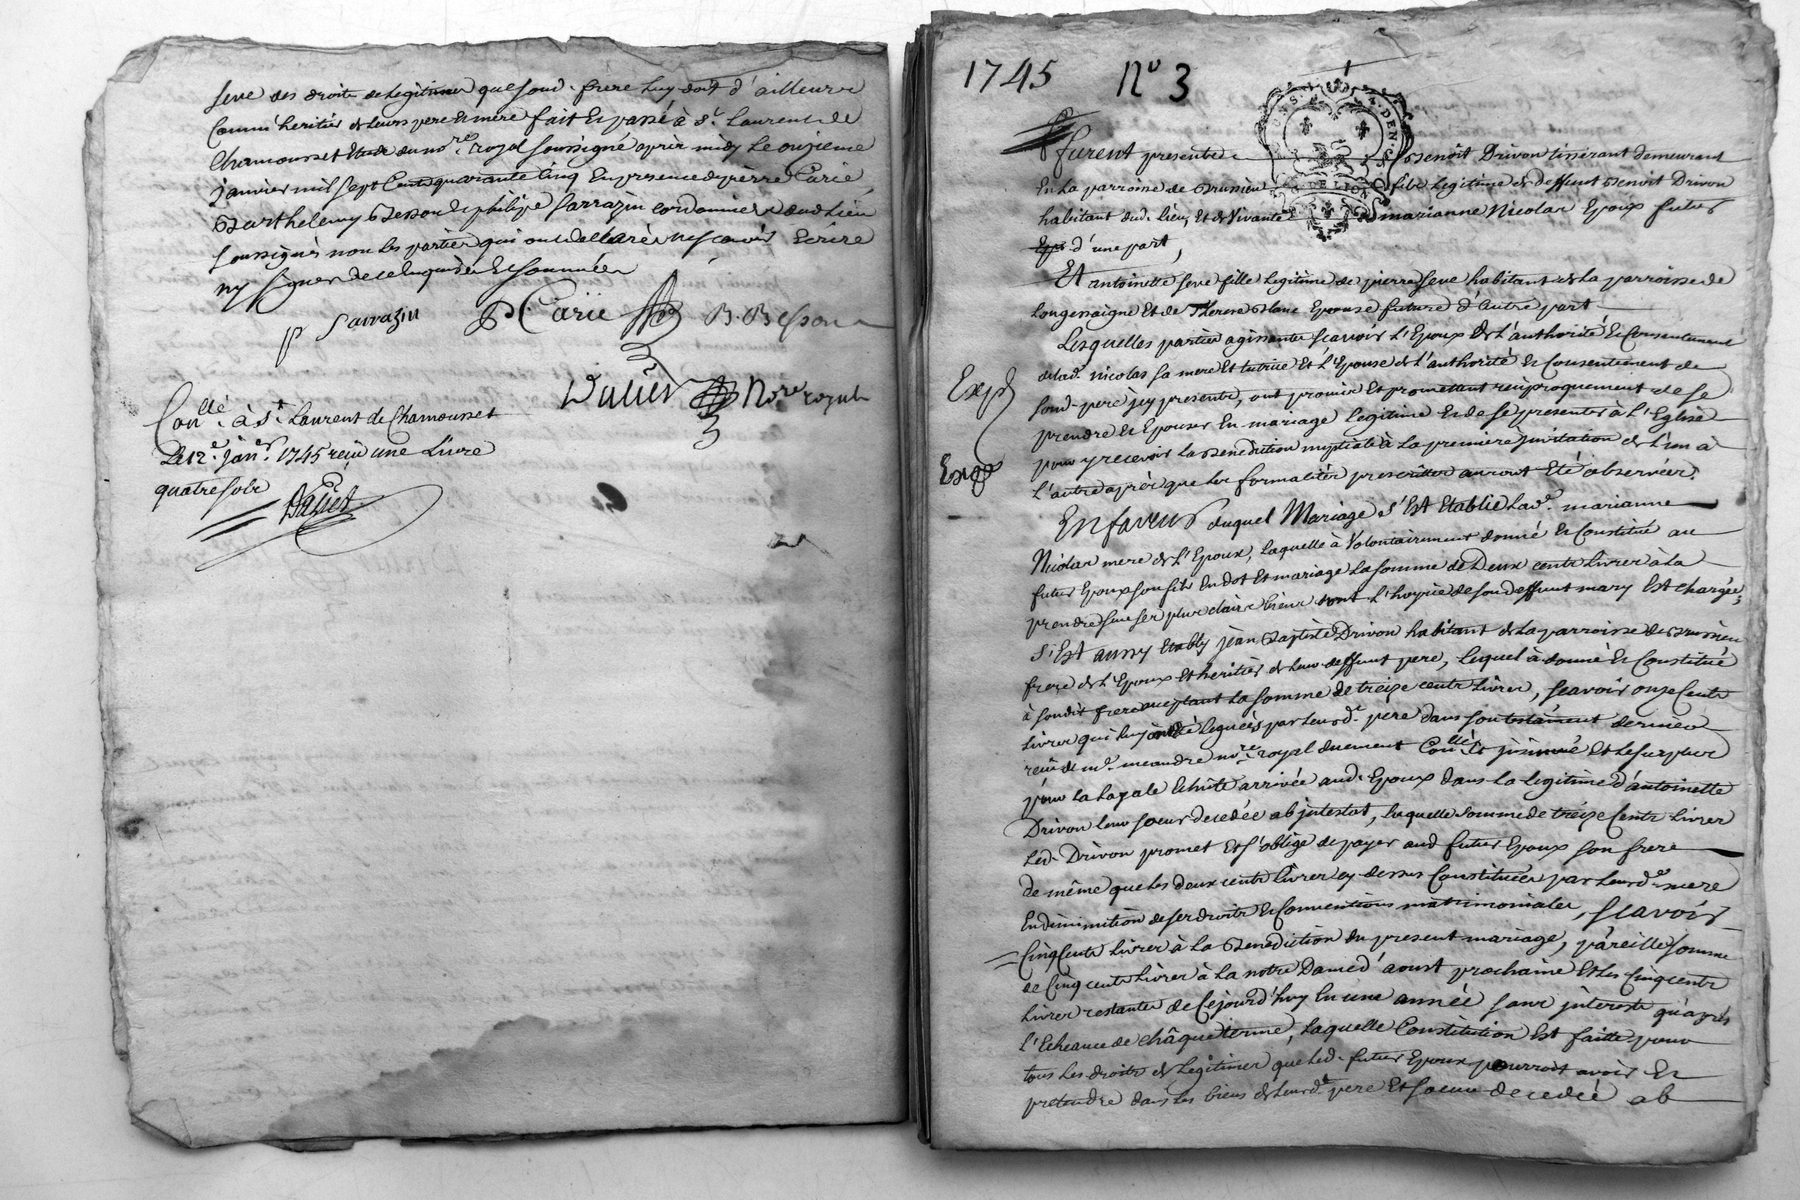 Seve des droits de legitime que sond. frere luy doit d'ailleurs
comme heritier de leurs pere et mere fait et passé à St. Laurent de
Chamousset Etude du nore. royal soussigné après midy le onzieme
Janvier mil sept cents quarante cinq en presence de pierre Carié
Barthelemy Besson et philipe Sarrazin cordonnier dud. lieu
soussignés non les parties qui ont declarés ne scavoir Ecrire
ny signer de ce enquises et sommées
p Sarrazin P. Carié B. Besson
Valier Nore royal
Conllé. à St. Laurent de Chamousset
Le 12e. janer. 1745 reçu une Livre
quatre sols
Valier
1745 No 3
GEN. DE LION
furent presents Benoit Drivon tisserant demeurant
En la parroisse de Brussieu fils legitime de deffunt Benoit Drivon
habitant dud. lieu, Et de Vivante marianne Nicolas Epoux futur
d'une part,
Et antoinette Seve fille legitime de pierre Seve habitant de la parroisse de
Longessaigne Et de Therese Blanc Epouse future d'autre part
Lesquelles parties agissantes scavoir l'Epoux de l'authorité et Consentement
de lad. Nicolas sa mere Et tutrice Et l'Epouse de l'authorité et Consentement de
sond. pere icy present, ont promis Et promettent reciproquement de se
prendre et Epouser En mariage legitime et de se presenter à l'Eglise
pour y recevoir la Benediction nuptiale à la premiere jnvitation de l'un à
l'autre après que les formalités prescrittes auront Eté observées.
Exp
Exp
En faveur duquel Mariage s'Est Etablie lade. marianne
Nicolas mere de l'Epoux, laquelle à Volontairement donné et Constitué au
futur Epoux son fils En dot Et mariage la somme de Deux cents livres à la
prendre sur ses plus clairs biens dont l'hoyrie de son deffunt mary Est chargée;
s'Est aussy Etably jean Baptiste Drivon habitant de la parroisse de Brussieu
frere de l'Epoux Et heritier de leur deffunt pere, lequel à donné et Constitué
à sondit frere acceptant la somme de treize cents livres, scavoir onze Cents
livres qui luy ont été leguées par leurd. pere dans son testament dernier
reçu de me. meandre nore. royal duement Conllé. et jnsinué Et le surplus
pour la Legale Echüte arrivée aud. Epoux dans la legitime d'antoinette
Drivon leur soeur decedée ab jntestat, laquelle somme de treize Cents livres
led. Drivon promet Et s'oblige de payer aud. futur Epoux son frere
de même que les deux cents livres cy dessus Constituées par leurde. mere
En diminution de ses droits et Conventions matrimoniales, scavoir
Cinq Cents livres à la Benediction du present mariage, pareille somme
de Cinq cents livres à la notre Dame d'aoust prochaine Et les Cinq cents
livres restantes de Cejourd'huy En une année sans jnterests qu'après
l'Echeance de châque terme, laquelle Constitution Est faitte pour
tous les droits de legitimes que led. futur Epoux pourroit avoir Et
pretendre dans les biens de leurd. pere Et soeur decedée ab